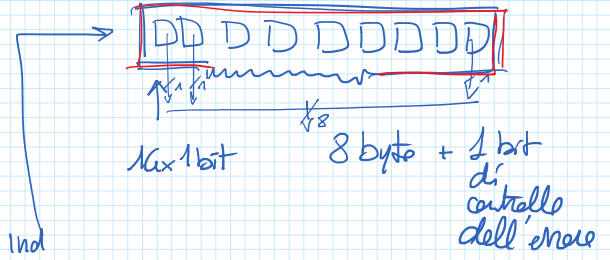 D D D D D D D D D
1 1 1
8
1Gx1bit 8 byte + 1 bit
di
controllo
dell'errore
Ind